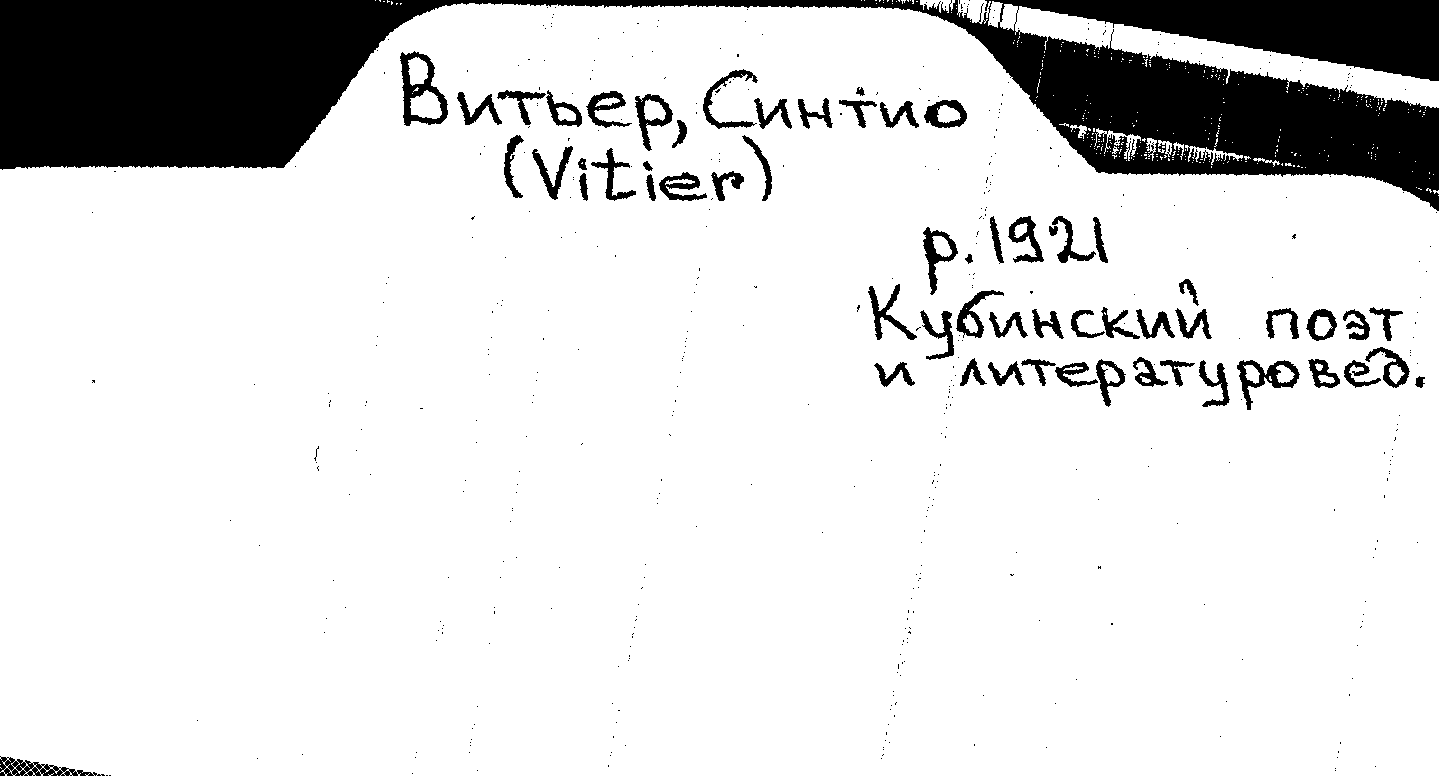 Витьер, Синтио
(Vitier)
р. 1921
Кубинский поэт
и литературовед.